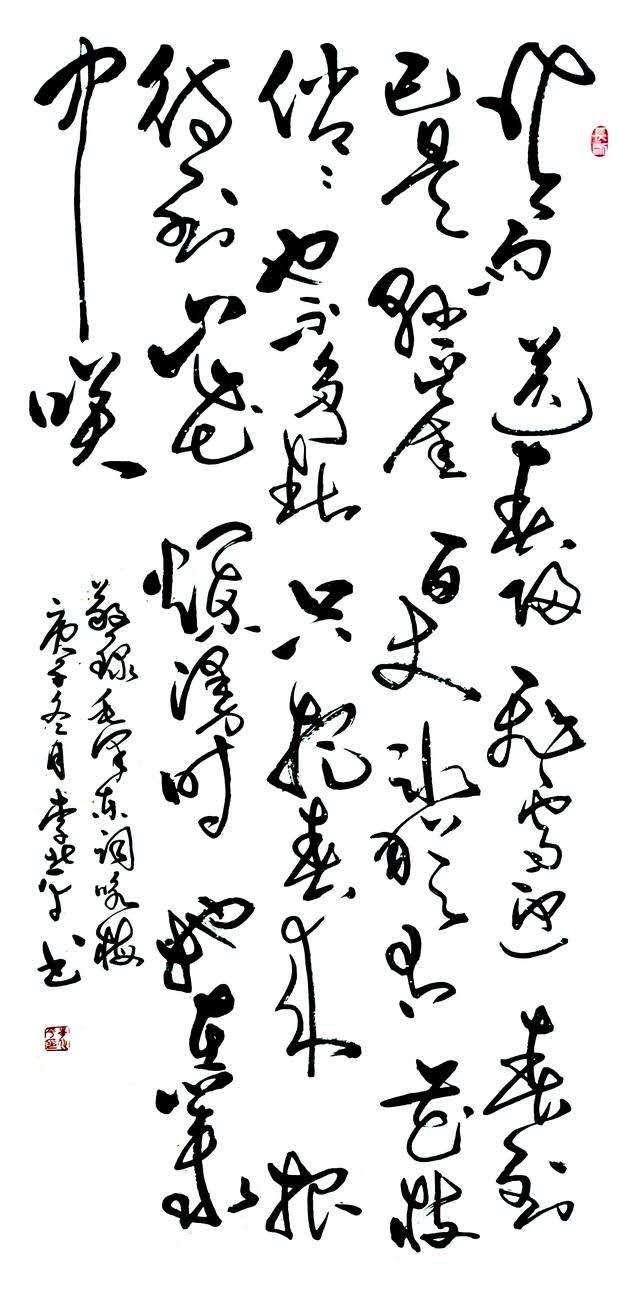 風雨送春归飛雪迎春到
已是懸崖百丈冰猶有花枝
俏〻也不争春只把春来报
待到山花爛漫时她在叢
中笑
敬录毛泽东词咏梅
庚子冬月李书